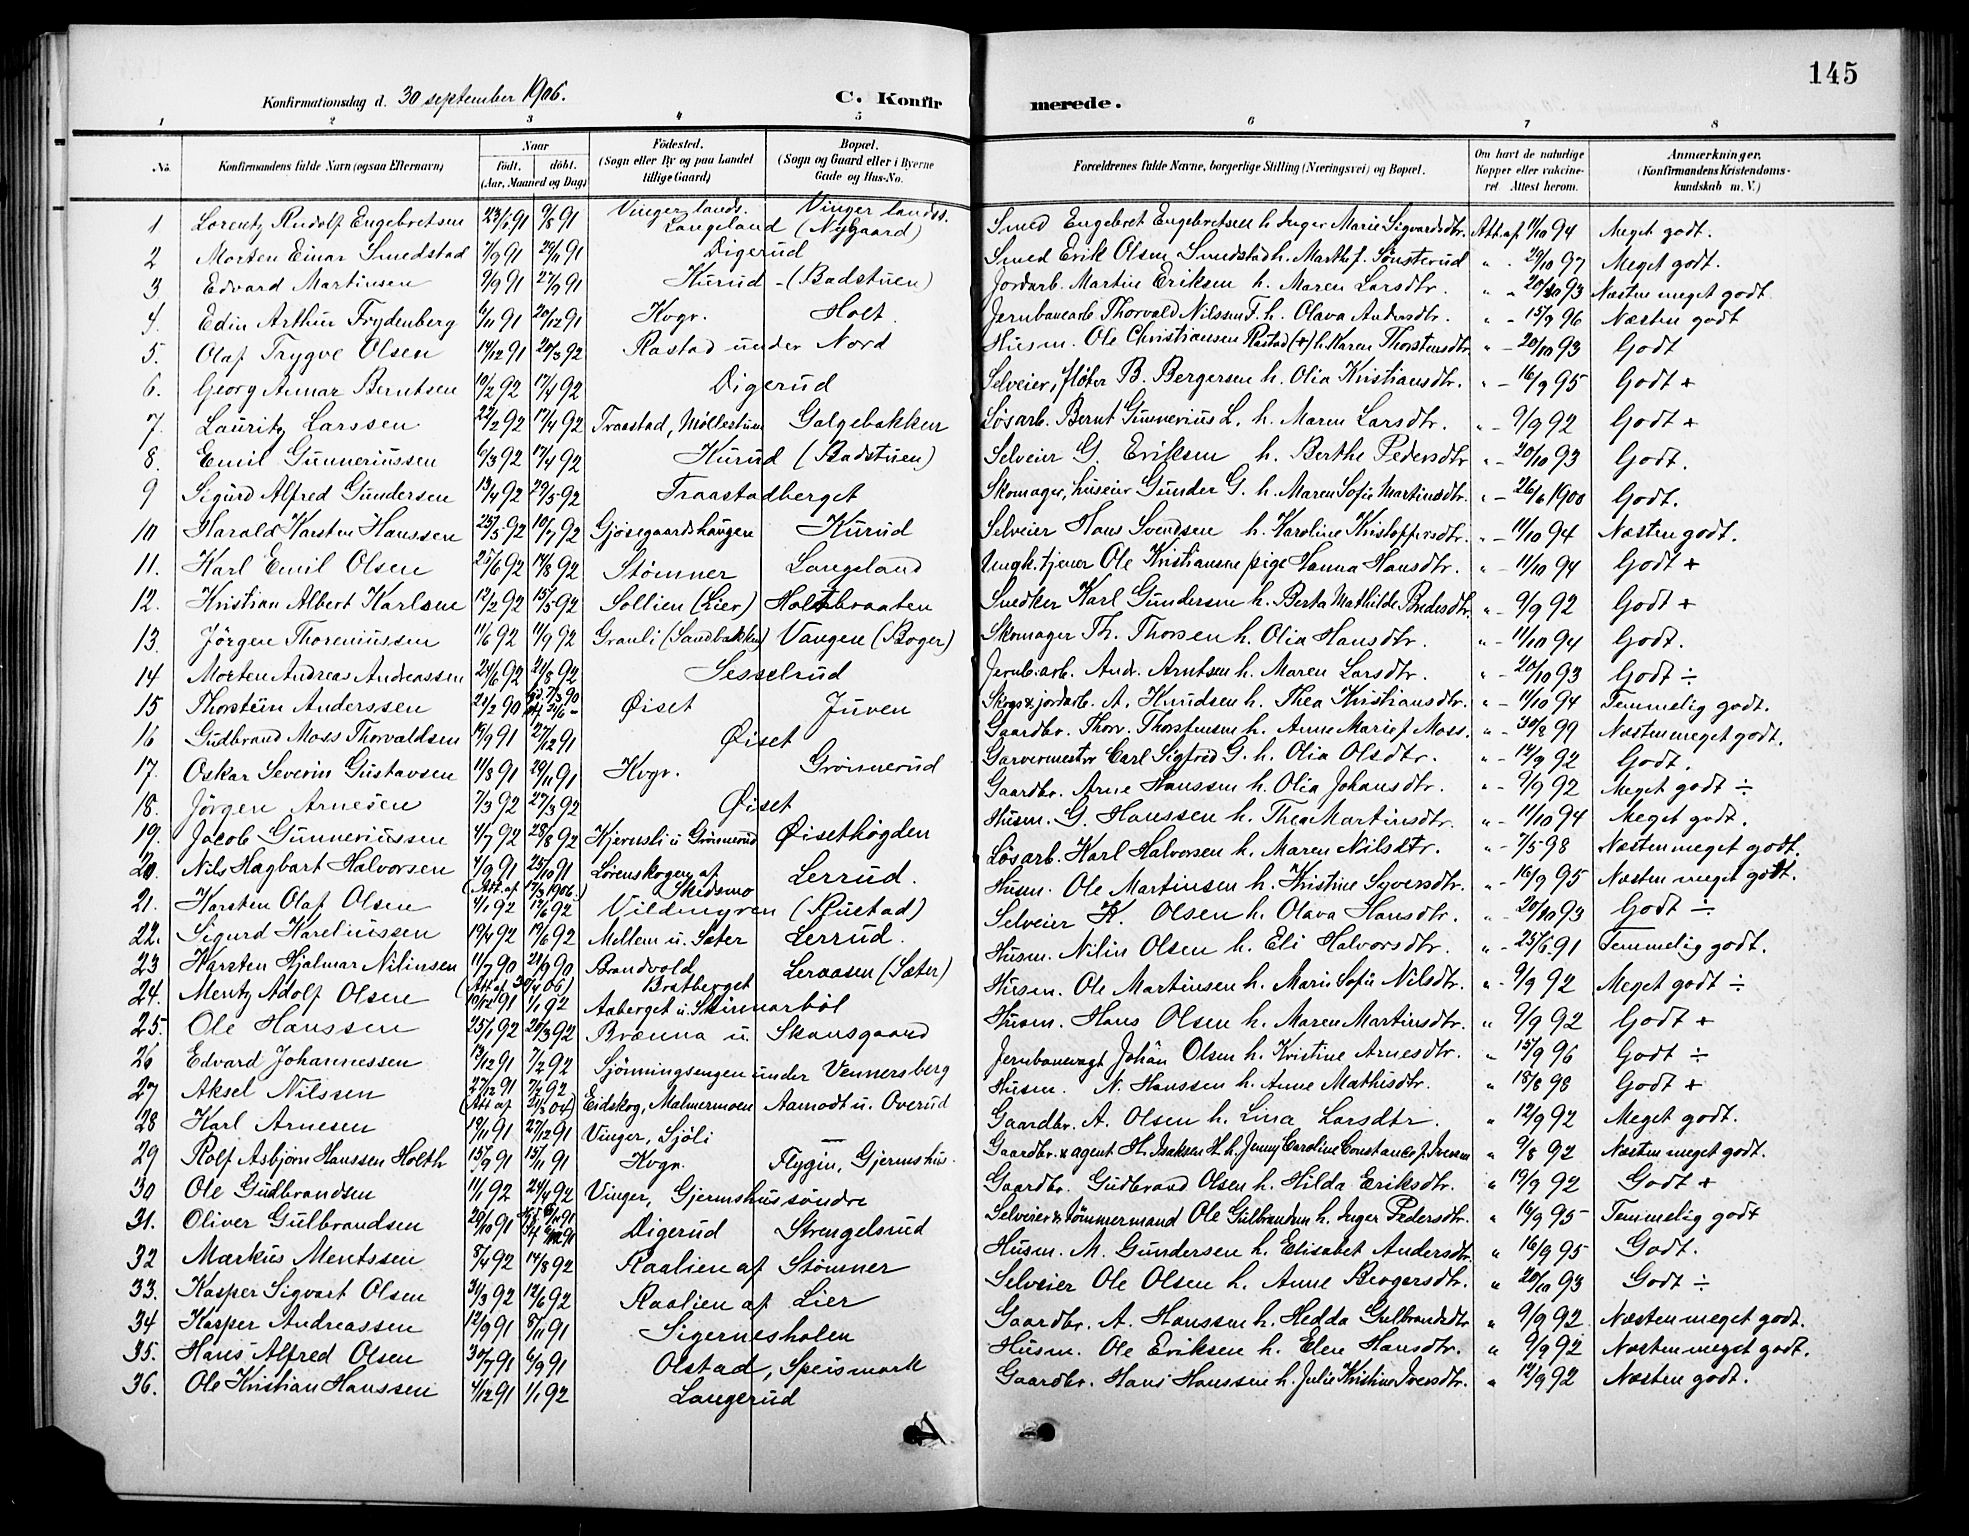 145
Konfirmationsdag d. 30 september 1906. C. Konfirmerede.
1 2 3 4 5 6 7 8
No. Konfirmandens fulde Navn (ogsaa Efternavn) Naar født. døbt. (Aar, Maaned og Dag) Fødested. (Sogn eller By og paa Landet tillige Gaard) Bopæl. (Sogn og Gaard eller i Byerne Gade og Hus-No. Forældrenes fulde Navne, borgerlige Stilling (Næringsvei) og Bopæl. Om havt de naturlige Kopper eller vakcineret Attest herom. Anmærkninger. (Konfirmandens Kristendomskundskab m. V.)
1 Lorentz Rudolf Engebretsen 23/1 91 9/8 91 Vinger lands. Langeland Vinger landss. (Nygaard) Smed Engebret Engebretsen h. Inger Marie Sigvardsdtr. Att. af 11/10 94 Meget godt.
2 Morten Einar Smedstad 7/9 91 29/11 91 Digerud Smed Erik Olsen Smedstad h. Marthe f. Sønsterud " 29/10 97 Meget godt.
3. Edvard Martinsen 7/9 91 27/9 91 Kurud - (Badstuen) Jordarb. Martin Eriksen h. Maren Larsdtr. " 20/10 93 Næsten meget godt.
4. Edin Arthur Frydenberg 6/11 91 20/12 91 Kvgr. Holt Jernbanearb. Thorvald Nilssen F. h. Olava Andersdtr. " - 15/9 96 Næsten godt
5. Olaf Trygve Olsen 14/12 91 20/3 92 Rastad under Nord Husm. Ole Christiansen Rastad (+) h. Karen Thorstensdtr. " - 20/10 93 Godt
6. Georg Annar Berntsen 10/2 92 17/4 92 Digerud Selveier, fløter B. Bergersen h. Olia Kristiansdtr. " - 16/9 95 Godt +
7. Lauritz Larssen 22/2 92 17/4 92 Traastad, Møllestuen Galgebakken Løsarb. Bernt Gunnerius L. h. Maren Larsdtr. " - 9/9 92 Godt +
8. Emil Gunneriussen 6/3 92 17/4 92 Kurud (Badstuen) Selveier G. Eriksen h. Berthe Pedersdtr " - 20/10 93 Godt.
9 Sigurd Alfred Gundersen 13/4 92 29/5 92 Traastadberget Skomager, huseier Gunder G. h. Maren Sofie Martinsdtr. " - 26/6 1900 Godt.
10 Harald Karsten Hanssen 25/5 92 10/7 92 Gjøsegaardshaugen Kurud Selveier Hans Svendsen h. Karoline Kristoffersdtr. " - 11/10 94 Næsten godt.
11. Karl Emil Olsen 25/6 92 14/8 92 Stømner Langeland Ungk. tjener Ole Kristiansen pige Hanna Hansdtr. " - 11/10 94 Godt +
12. Kristian Albert Karlsen 12/2 92 15/5 92 Sollien (Lier) Holtbraaten Snedker Karl Gundersen h. Berta Mathilde Pedersdtr. " - 9/9 92 Godt +
13. Jörgen Thoreniussen 11/6 92 11/9 92 Granli (Sandbakken) Vangen (Boger) Skomager Th. Thorsen h. Olia Hansdtr. " - 11/10 94 Godt.
14 Morten Andreas Andreassen 24/6 92 21/8 92 Sesselrud Jernb. arb. Andr. Arntsen h. Maren Larsdtr. " - 20/10 93 Godt ÷
15 Thorstein Anderssen 24/2 90 Øiset Juven Skogs & jordarb. A. Knudsen h. Thea Kristiansdtr. " - 11/10 94 Temmelig godt.
16 Gudbrand Moss Thorvaldsen 19/9 91 27/12 91 Øiset Gaardbr. Thorv. Thorstensen h. Anne Marie f. Moss. " - 30/8 99 Næsten meget godt.
17. Oskar Severin Gustavsen 11/8 91 29/11 91 Kvgr. Grönnerud Garvermester Carl Sigfred G. h. Olia Olsdtr. " - 12/9 92 Godt.
18. Jörgen Arnesen 7/3 92 27/3 92 Øiset Gaardbr. Arne Hanssen h. Olia Johansdtr. " - 9/9 92 Meget godt ÷
19. Jacob Gunneriussen 4/7 92 28/8 92 Kjernsli u Grönnerud Øisethögden Husm. G. Hanssen h. Thea Martinsdtr. " - 11/10 94 Meget godt.
20. Nils Hagbart Halvorsen 4/9 91 25/10 91 (Att. af 17/3 1906.) Lørenskogen af Skedsmo Lerrud. Løsarb. Karl Halvorsen h. Maren Nilsdtr. " - 7/5 98 Næsten meget godt.
21. Karsten Olaf Olsen 4/1 92 12/6 92 Vildmyren (Rustad) Husm. Ole Martinsen h. Kristine Syversdtr. " - 16/9 95 Næsten meget godt.
22. Sigurd Kareliussen 19/4 92 19/6 92 Mellem u. Sæter Lerrud. Selveier K. Olsen h. Olava Hansdtr. " - 20/10 93 Godt ÷
23 Karsten Hjalmar Nilinsen 11/7 90 28/9 90 (Att af 30/4 06) Brandvold, Bratberget Leraasen (Sæter) Husm. Nilin Olsen h. Eli Halvorsdtr. " - 25/6 91 Temmelig godt.
24. Mentz Adolf Olsen 10/12 91 1/1 92 Aaberget u. Skinnarböl Husm. Ole Martinsen h. Marie Sofie Nilsdtr. " - 9/9 92 Meget godt ÷
25. Ole Hanssen 25/1 92 20/3 92 Brænna u. Skansgaard Husm. Hans Olsen h. Maren Martinsdtr. " 9/9 92 Godt +
26 Edvard Johannessen 13/12 91 7/2 92 Sjönningsengen under Vennersberg Jernbanevagt Johan Olsen h. Kristine Arnesdtr. " 15/9 96 Godt ÷
27 Aksel Nilssen 27/12 91 7/2 92 (Att af 21/3 04) Eidskog, Malmermoen Aamodt u. Overud Husm. N. Hanssen h. Anne Mathisdtr. " 18/8 98 Godt +
28 Karl Arnesen 19/11 91 27/12 91 Vinger, Sjöli — Gaardbr. A. Olsen h. Lina Larsdtr. " 12/9 92 Meget godt.
29 Rolf Asbjørn Hanssen Holth 15/9 91 15/11 91 Kvgr. Flygin, Gjermshus. Gaardbr. & agent H. Isaksen H. h. Jenny Caroline Constance f. Iversen " 9/8 92 Næsten meget godt.
30 Ole Gudbrandsen 11/1 92 24/4 92 Vinger, Gjermshus søndre Gaardbr. Gudbrand Olsen h. Hilda Eriksdtr. " 19/9 92 Godt +
31. Oliver Gulbrandsen 20/10 91 Digerud Strengelsrud Selveier & tömmermand Ole Gulbrandsen h. Inger Pedersdtr. " 16/9 95 Temmelig godt
32 Markus Mentssen 8/4 92 14/8 92 Raalien af Stömner Husm. M. Gundersen h. Elisabet Andersdtr. " 16/9 95 Godt.
33. Kasper Sigvart Olsen 31/3 92 12/6 92 Raalien af Lier Selveier Ole Olsen h. Anne Bergersdtr. " 20/10 93 Godt ÷
34 Kasper Andreassen 12/9 91 8/11 91 Sigernesholen Gaardbr. A. Hanssen h. Hedda Gulbrandsdtr " 9/9 92 Næsten meget godt.
35. Hans Alfred Olsen 30/7 91 6/9 91 Olstad, Speismark Husm. Ole Eriksen h. Elen Hansdtr. " 9/9 92 Næsten meget godt.
36. Ole Kristian Hanssen 4/12 91 1/1 92 Langerud Gaardbr. Hans Hanssen h. Julie Kristine Iversdtr. " 12/9 92 Næsten godt.